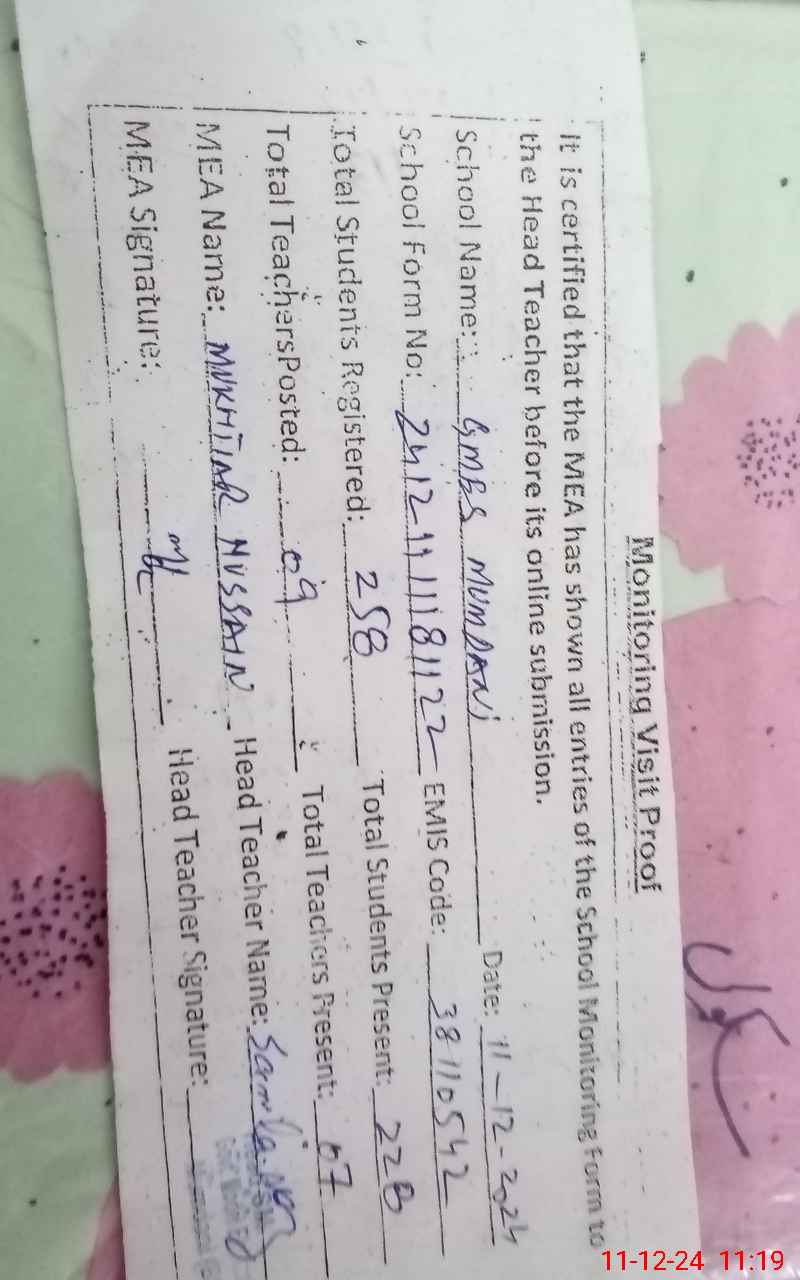 Monitoring Visit Proof
It is certified that the MEA has shown all entries of the School Monitoring Form to
the Head Teacher before its online submission.
School Name: GMBS MUNDANI Date: 11-12-2024
School Form No: EMIS Code: 38110542
Total Students Registered: 258 Total Students Present: 228
Total Teachers Posted: 09 Total Teachers Present: 07
MEA Name: MUKHTIAR HUSSAIN Head Teacher Name:
MEA Signature: Head Teacher Signature:
11-12-24 11:19